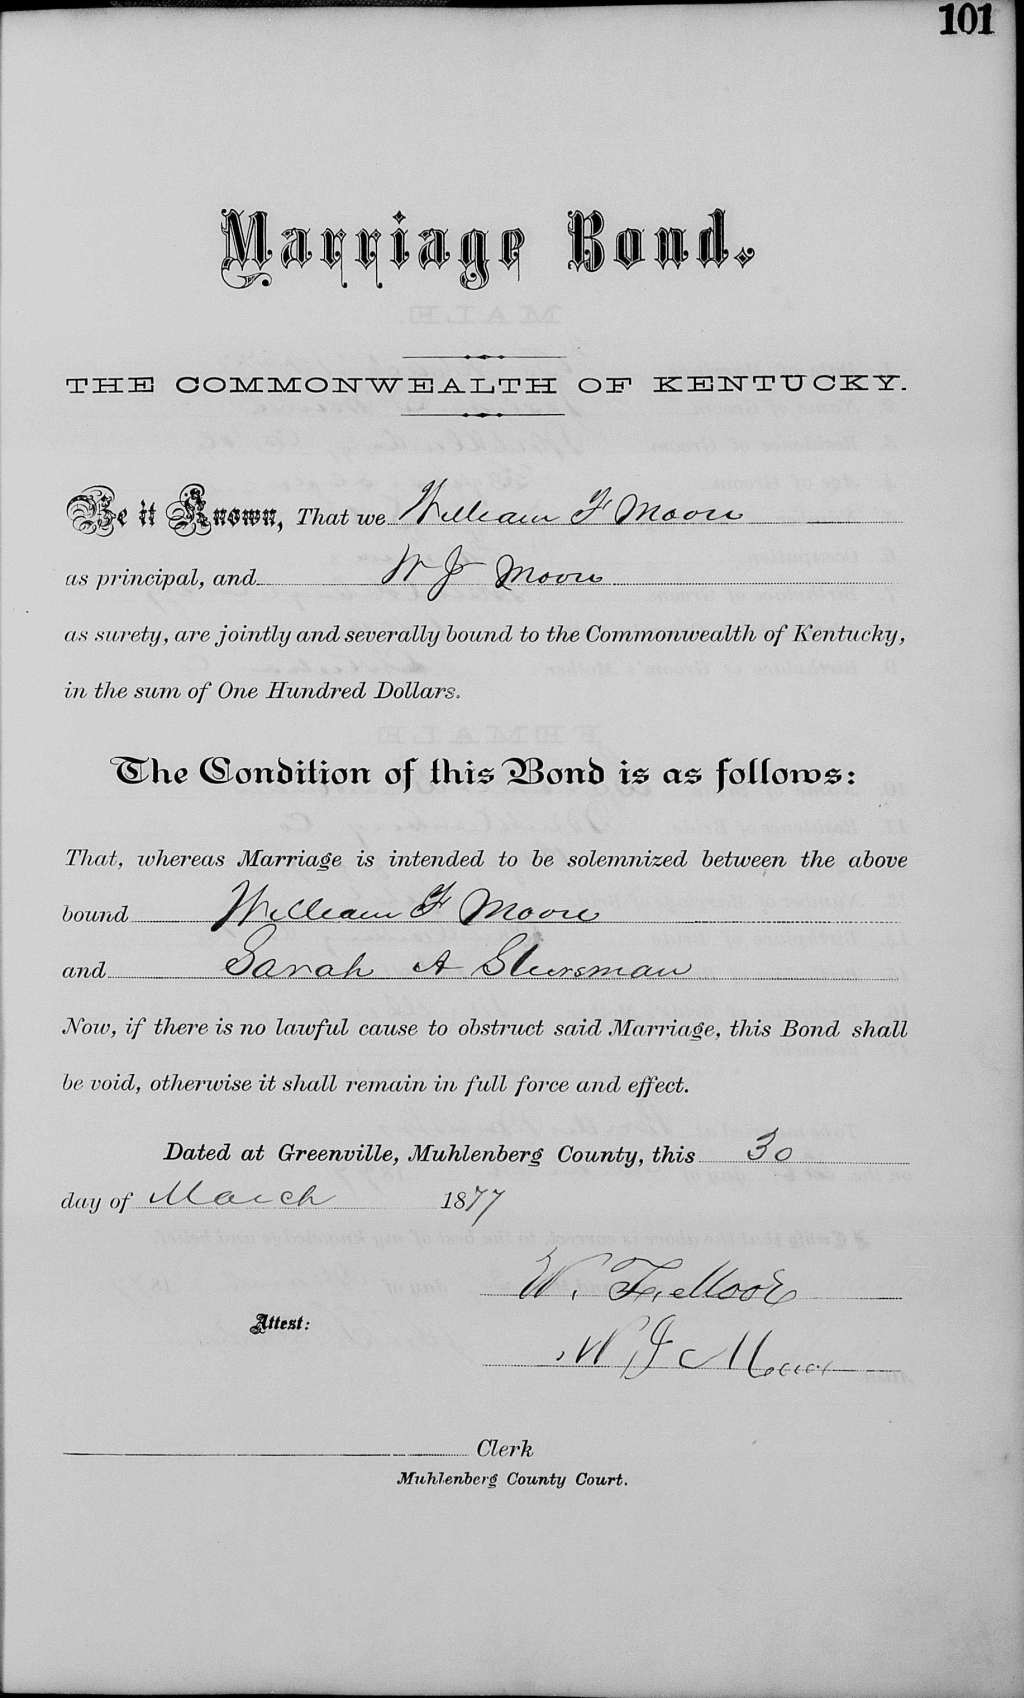 101
Marriage Bond.
THE COMMONWEALTH OF KENTUCKY.
Be it Known, That we William F Moore
as principal, and W J Moore
as surety, are jointly and severally bound to the Commonwealth of Kentucky,
in the sum of One Hundred Dollars.
The Condition of this Bond is as follows:
That, whereas Marriage is intended to be solemnized between the above
bound William F Moore
and Sarah A
Now, if there is no lawful cause to obstruct said Marriage, this Bond shall
be void, otherwise it shall remain in full force and effect.
Dated at Greenville, Muhlenberg County, this 30
day of March 1877
W. F. Moore
Attest:
W J Moore
Clerk
Muhlenberg County Court.